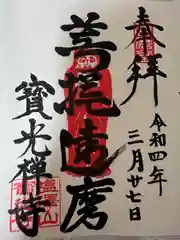 奉拝
令和四年
三月廿七日
菩提達磨
寶光禅寺